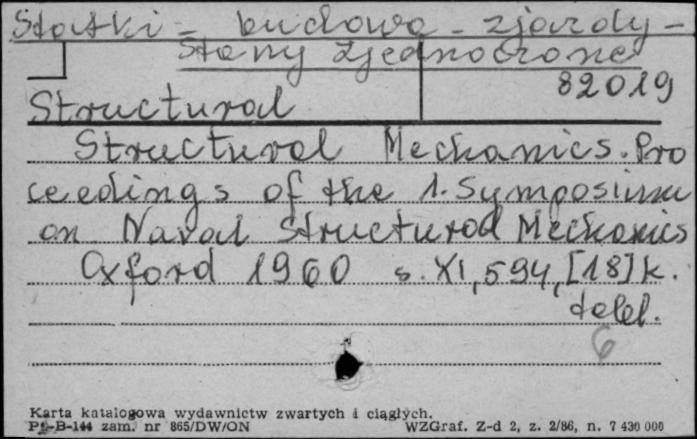 Statki - budowa - zjazdy -
Stany Zjednoczone
82019
Structural
Structural Mechanics. Pro
ceedings of the 1. Symposium
on Naval Structural Mechanics
Oxford 1960 s. XI, 594, [18] k.
tabl.
6
Karta katalogowa wydawnictw zwartych i ciągłych.
Pu-B-144 zam. nr 865/DW/ON WZGraf. Z-d 2, z. 2/86, n. 7 430 000